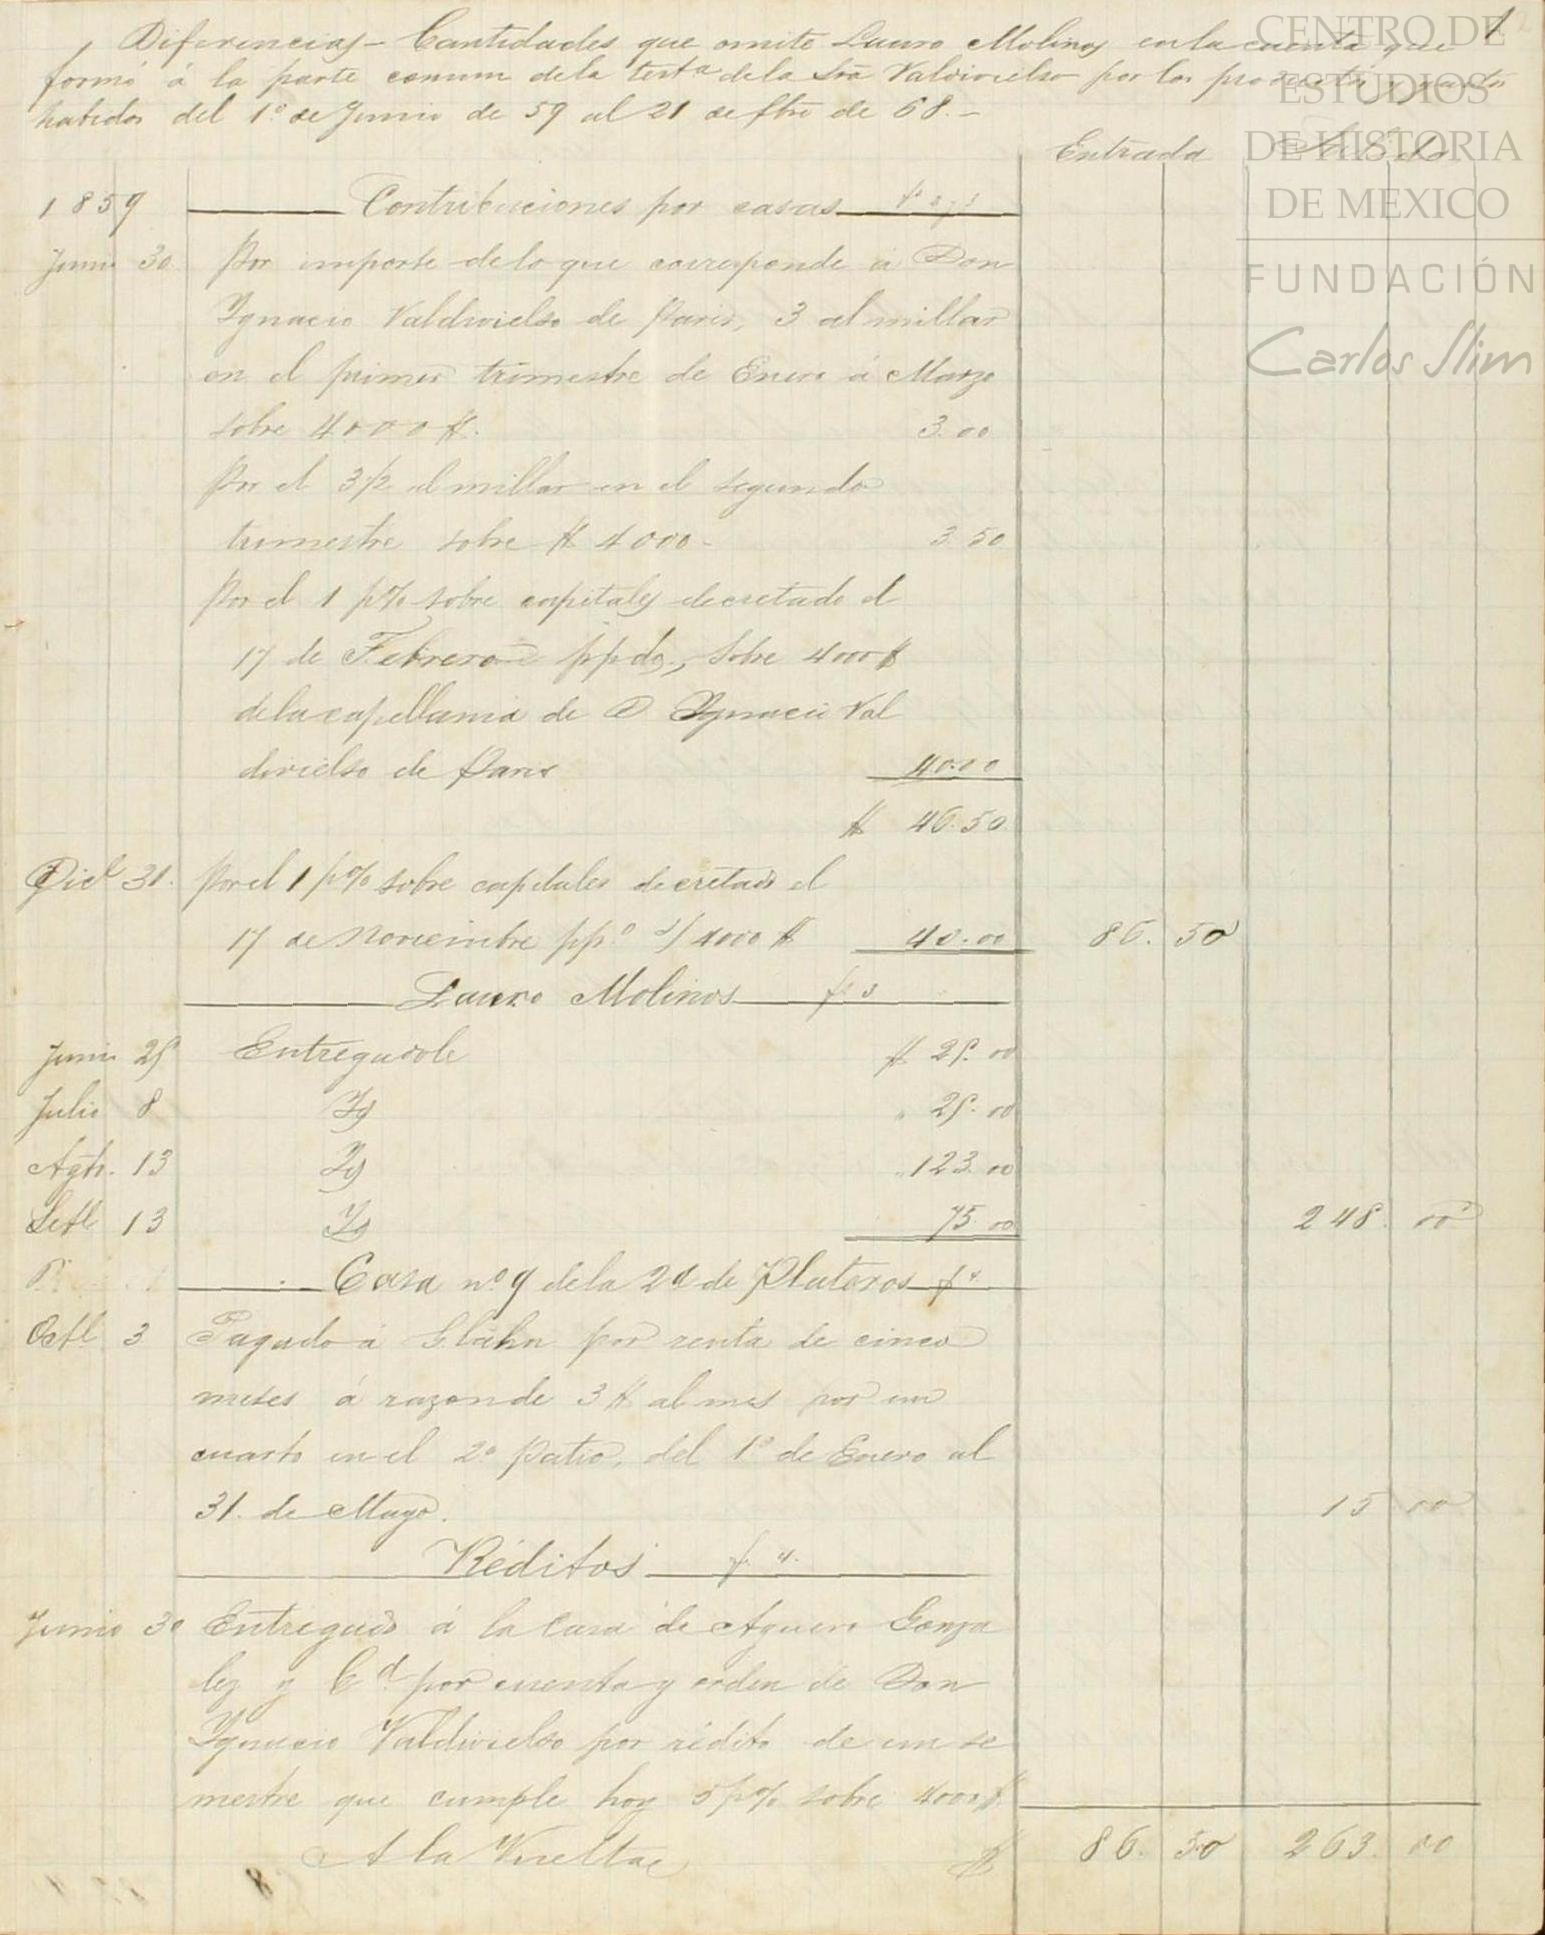 Diferencias – Cantidades que omite Lauro Molinos en la cuenta que
formó á la parte comun de la testa de la Sra Valdivielso por los productos y gastos
habidos del 1º de Junio de 59 al 21 de Sbre de 68.–
Entrada Salida
1859 Contribuciones por casas
Junio 30 Por importe de lo que corresponde á Don
Ygnacio Valdivielso de Paris, 3 al millar
en el primer trimestre de Enero á Marzo
sobre 4000 $. 3.00
Por el 3 1/2 al millar en el segundo
trimestre sobre $ 4000– 3.50
Por el 1 p% sobre capitales decretado el
17 de Febrero ppdo, sobre 4000 $
de la capellania de D. Ygnacio Val
divielso de Paris 40.00
$ 46.50
Dice 31. Por el 1 p% sobre capitales decretado el
17 de Noviembre pp.º s/ 4000 $ 40.00 86.50
Lauro Molinos fs 3
Junio 25 Entregadole $ 25.00
Julio 8 Yd " 25.00
Agto. 13 Yd " 123.00
Sete 13 Yd 75 00 248.00
Casa nº 9 de la 2ª de Plateros fs 4
Octe 3 Pagado á Glähn por renta de cinco
meses á razon de 3 $ al mes por un
cuarto en el 2º Patio, del 1º de Enero al
31. de Mayo. 15 00
Réditos f. 4.
Junio 30 Entregado á la Casa de Aguero Gonza
lez y Ca. por cuenta y orden de Don
Ygnacio Valdivielso por rédito de un se
mestre que cumple hoy 5 p% sobre 4000 $
A la Vuelta $ 86.50 263.00
CENTRO DE
ESTUDIOS
DE HISTORIA
DE MEXICO
FUNDACIÓN
Carlos Slim